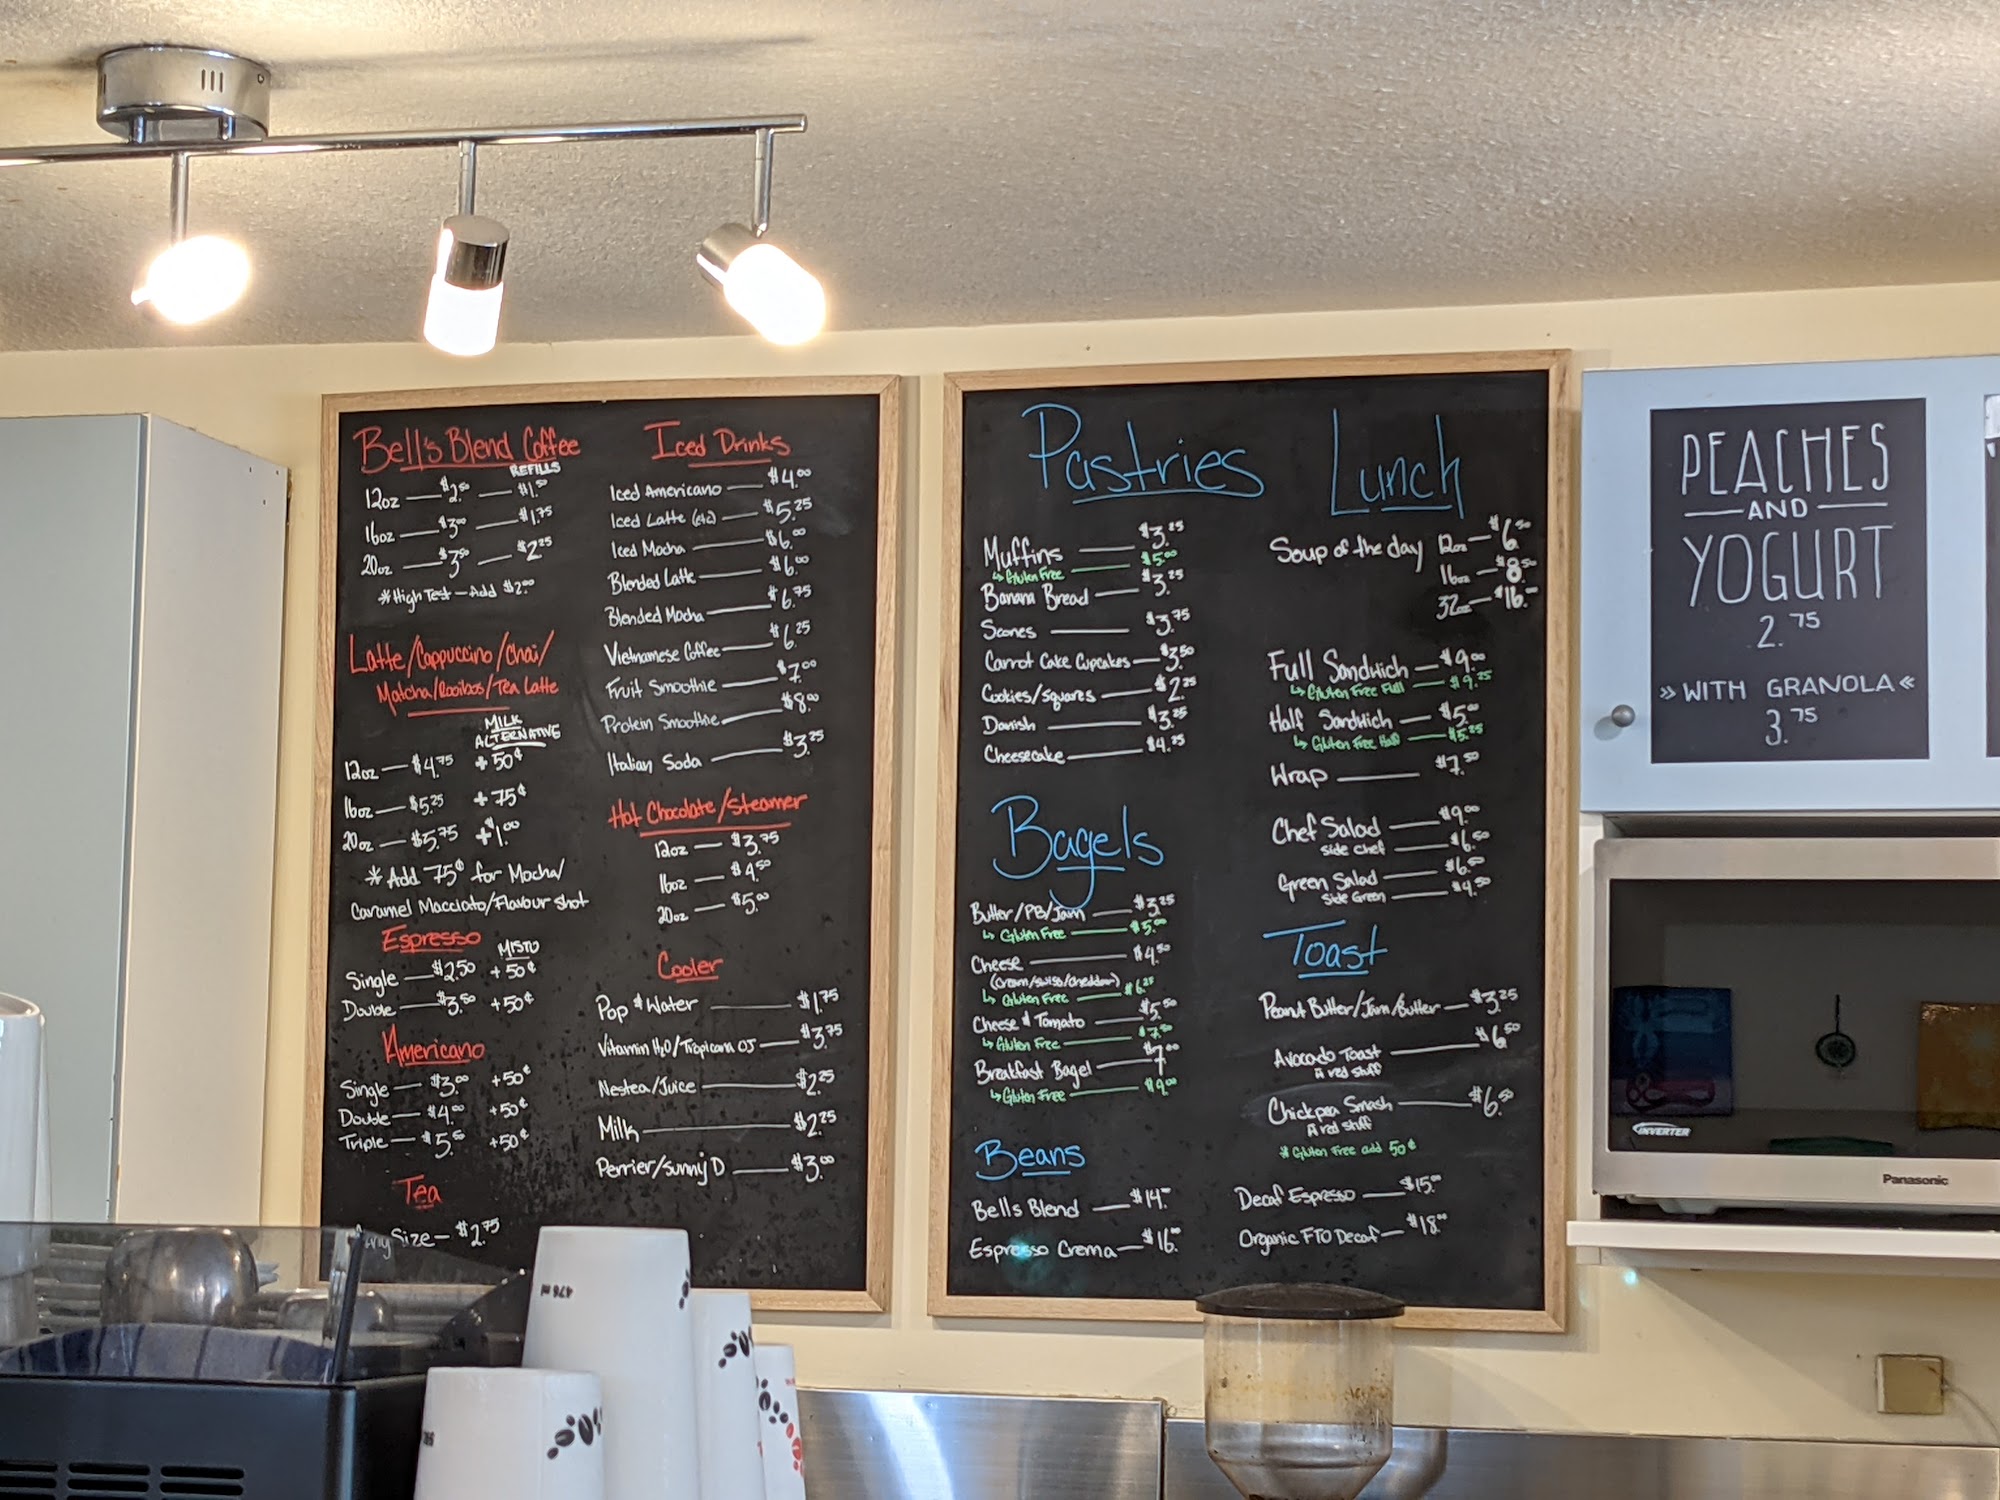 Bell's Blend Coffee
REFILLS
12oz — $2.50 — $1.50
16oz — $3.00 — $1.75
20oz — $3.50 — $2.25
*High Test — Add $2.00
Latte/Cappuccino/Chai/
Matcha/Rooibos/Tea Latte
MILK
ALTERNATIVE
12oz — $4.75 +50¢
16oz — $5.25 +75¢
20oz — $5.75 +$1.00
*Add 75¢ for Mocha/
Caramel Macciato/Flavour shot
Espresso
MISTO
Single — $2.50 +50¢
Double — $3.50 +50¢
Americano
Single — $3.00 +50¢
Double — $4.00 +50¢
Triple — $5.50 +50¢
Tea
Any Size — $2.75
Iced Drinks
Iced Americano — $4.00
Iced Latte (etc) — $5.25
Iced Mocha — $6.00
Blended Latte — $6.00
Blended Mocha — $6.75
Vietnamese Coffee — $6.25
Fruit Smoothie — $7.00
Protein Smoothie — $8.00
Italian Soda — $3.25
Hot Chocolate/Steamer
12oz — $3.75
16oz — $4.50
20oz — $5.00
Cooler
Pop & Water — $1.75
Vitamin H2O/Tropicana OJ — $3.75
Nestea/Juice — $2.25
Milk — $2.25
Perrier/Sunny D — $3.00
Pastries
Muffins — $3.25
↳ Gluten Free — $5.00
Banana Bread — $3.25
Scones — $3.75
Carrot Cake Cupcakes — $3.50
Cookies/Squares — $2.25
Danish — $3.25
Cheesecake — $4.25
Bagels
Butter/PB/Jam — $3.25
↳ Gluten Free — $5.00
Cheese — $4.50
(Cream/swiss/cheddar)
↳ Gluten Free — $6.25
Cheese & Tomato — $5.50
↳ Gluten Free — $7.50
Breakfast Bagel — $7.00
↳ Gluten Free — $9.00
Beans
Bells Blend — $14.00
Espresso Crema — $16.00
Lunch
Soup of the day 12oz — $6.50
16oz — $8.50
32oz — $16.—
Full Sandwich — $9.00
↳ Gluten Free Full — $9.25
Half Sandwich — $5.00
↳ Gluten Free Half — $5.25
Wrap — $7.50
Chef Salad — $9.00
side chef — $6.50
Green Salad — $6.50
side Green — $4.50
Toast
Peanut Butter/Jam/Butter — $3.25
Avocado Toast — $6.50
A red stuff
Chickpea Smash — $6.50
A red stuff
* Gluten Free add 50¢
Decaf Espresso — $15.00
Organic FTO Decaf — $18.00
PEACHES
— AND —
YOGURT
2.75
» WITH GRANOLA «
3.75
INVERTER
Panasonic
476 ml